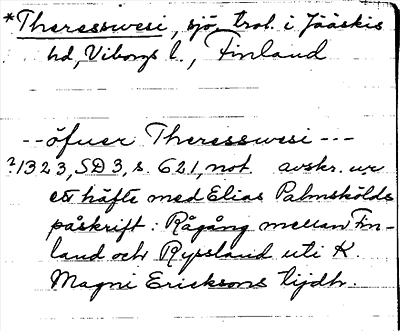 *Theresswesi, sjö, trol. i Jääskis
hd, Viborgs l., Finland
--öfuer Theresswesi---
?1323, SD 3, s. 621, not. avskr. ur
ett häfte med Elias Palmskölds
påskrift: Rågång mellan Fin-
land och Ryssland uti K.
Magni Ericksons tijdh.